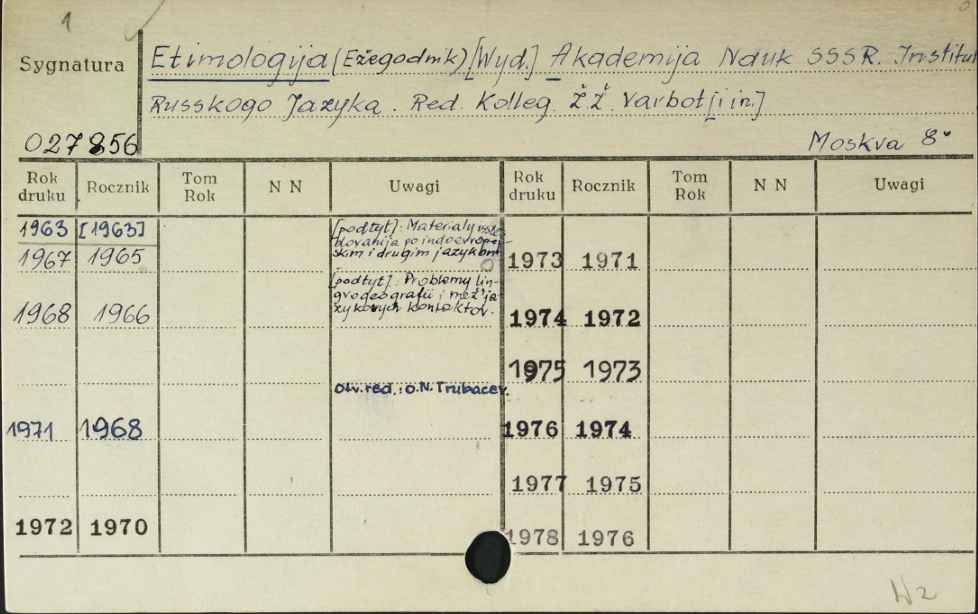 1
Sygnatura
Etimologija (Ežegodnik) [Wyd.] Akademija Nauk SSSR. Institut
Russkogo Jazyka. Red. Kolleg. Ž.Ž. Varbot [i in.]
027856
Moskva 8°
Rok druku Rocznik Tom Rok N N Uwagi Rok druku Rocznik Tom Rok N N Uwagi
1963 [1963]
[podtyt]: Materialy
po indoevropej-
skim i drugim jazykam
1967 1965
1973 1971
[podtyt]: Problemy lin-
gvogeografii i mež"ja-
zykovych kontaktov.
1968 1966
1974 1972
1975 1973
Otv. red.: O.N. Trubacev.
1971 1968
1976 1974
1977 1975
1972 1970
1978 1976